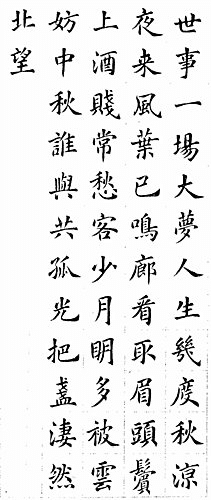 世事一場大夢人生幾度秋涼
夜来風葉已鳴廊看取眉頭鬢
上酒賤常愁客少月明多被雲
妨中秋誰與共孤光把盞淒然
北望